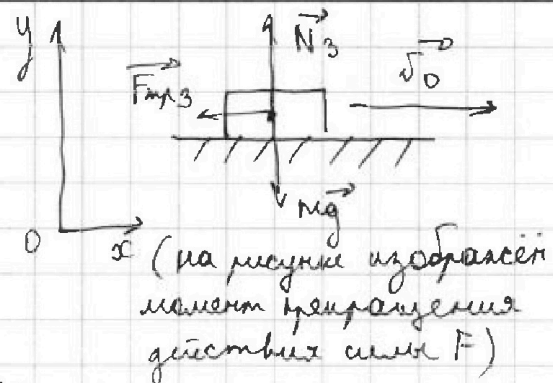 y
N₃
Fтр₃
v₀
mg
0
x (на рисунке изображён
момент прекращения
действия силы F)